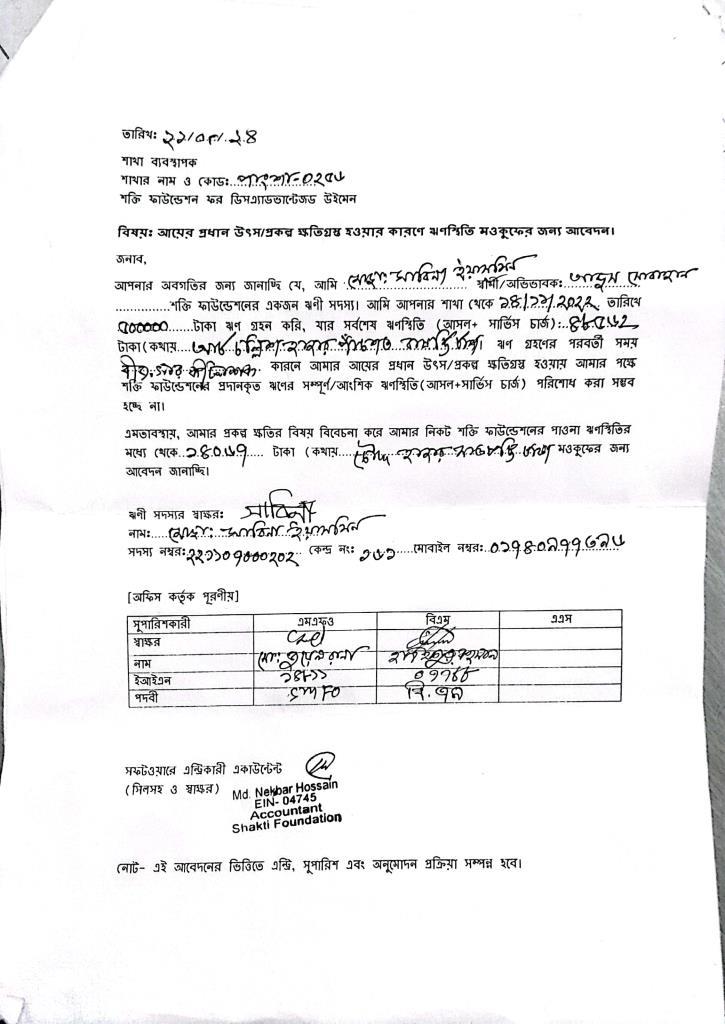 তারিখঃ ২২/০৮/২৪
শাখা ব্যবস্থাপক
শাখার নাম ও কোডঃ..পাংশা-০২৫৬
শক্তি ফাউন্ডেশন ফর ডিসএ্যাডভান্টেজড উইমেন
বিষয়ঃ আয়ের প্রধান উৎস/প্রকল্প ক্ষতিগ্রস্থ হওয়ার কারণে ঋণস্থিতি মওকুফের জন্য আবেদন।
জনাব,
আপনার অবগতির জন্য জানাচ্ছি যে, আমি মোছাঃ সাবিনা ইয়াসমিন স্বামী/অভিভাবক:
শক্তি ফাউন্ডেশনের একজন ঋণী সদস্য। আমি আপনার শাখা থেকে ১৪/১১/২০২২ তারিখে
৫০০০০০ টাকা ঋণ গ্রহন করি, যার সর্বশেষ ঋণস্থিতি (আসল+ সার্ভিস চার্জ)
টাকা (কথায় আট চল্লিশ হাজার পাঁচশত টাকা) ঋণ গ্রহণের পরবর্তী সময়
কারনে আমার আয়ের প্রধান উৎস/প্রকল্প ক্ষতিগ্রস্থ হওয়ায় আমার পক্ষে
শক্তি ফাউন্ডেশনের প্রদানকৃত ঋণের সম্পূর্ণ/আংশিক ঋণস্থিতি(আসল+সার্ভিস চার্জ) পরিশোধ করা সম্ভব
হচ্ছে না।
এমতাবস্থায়, আমার প্রকল্প ক্ষতির বিষয় বিবেচনা করে আমার নিকট শক্তি ফাউন্ডেশনের পাওনা ঋণস্থিতির
মধ্যে থেকে ১৪০৬৭ টাকা (কথায় চৌদ্দ হাজার সাতষট্টি টাকা মওকুফের জন্য
আবেদন জানাচ্ছি।
ঋণী সদস্যর স্বাক্ষরঃ সাবিনা
নামঃ মোছাঃ সাবিনা ইয়াসমিন
সদস্য নম্বরঃ ২২১০৭০০০২০২ কেন্দ্র নংঃ ১৬১ মোবাইল নম্বরঃ
[অফিস কর্তৃক পূরণীয়]
সুপারিশকারী এমএফও বিএম এএস
স্বাক্ষর
নাম
ইআইএন
পদবী SMFO বি.এম
সফটওয়ারে এন্ট্রিকারী একাউন্টেন্ট
(সিলসহ ও স্বাক্ষর)
Md. Nekbar Hossain
EIN- 04745
Accountant
Shakti Foundation
নোট- এই আবেদনের ভিত্তিতে এন্ট্রি, সুপারিশ এবং অনুমোদন প্রক্রিয়া সম্পন্ন হবে।